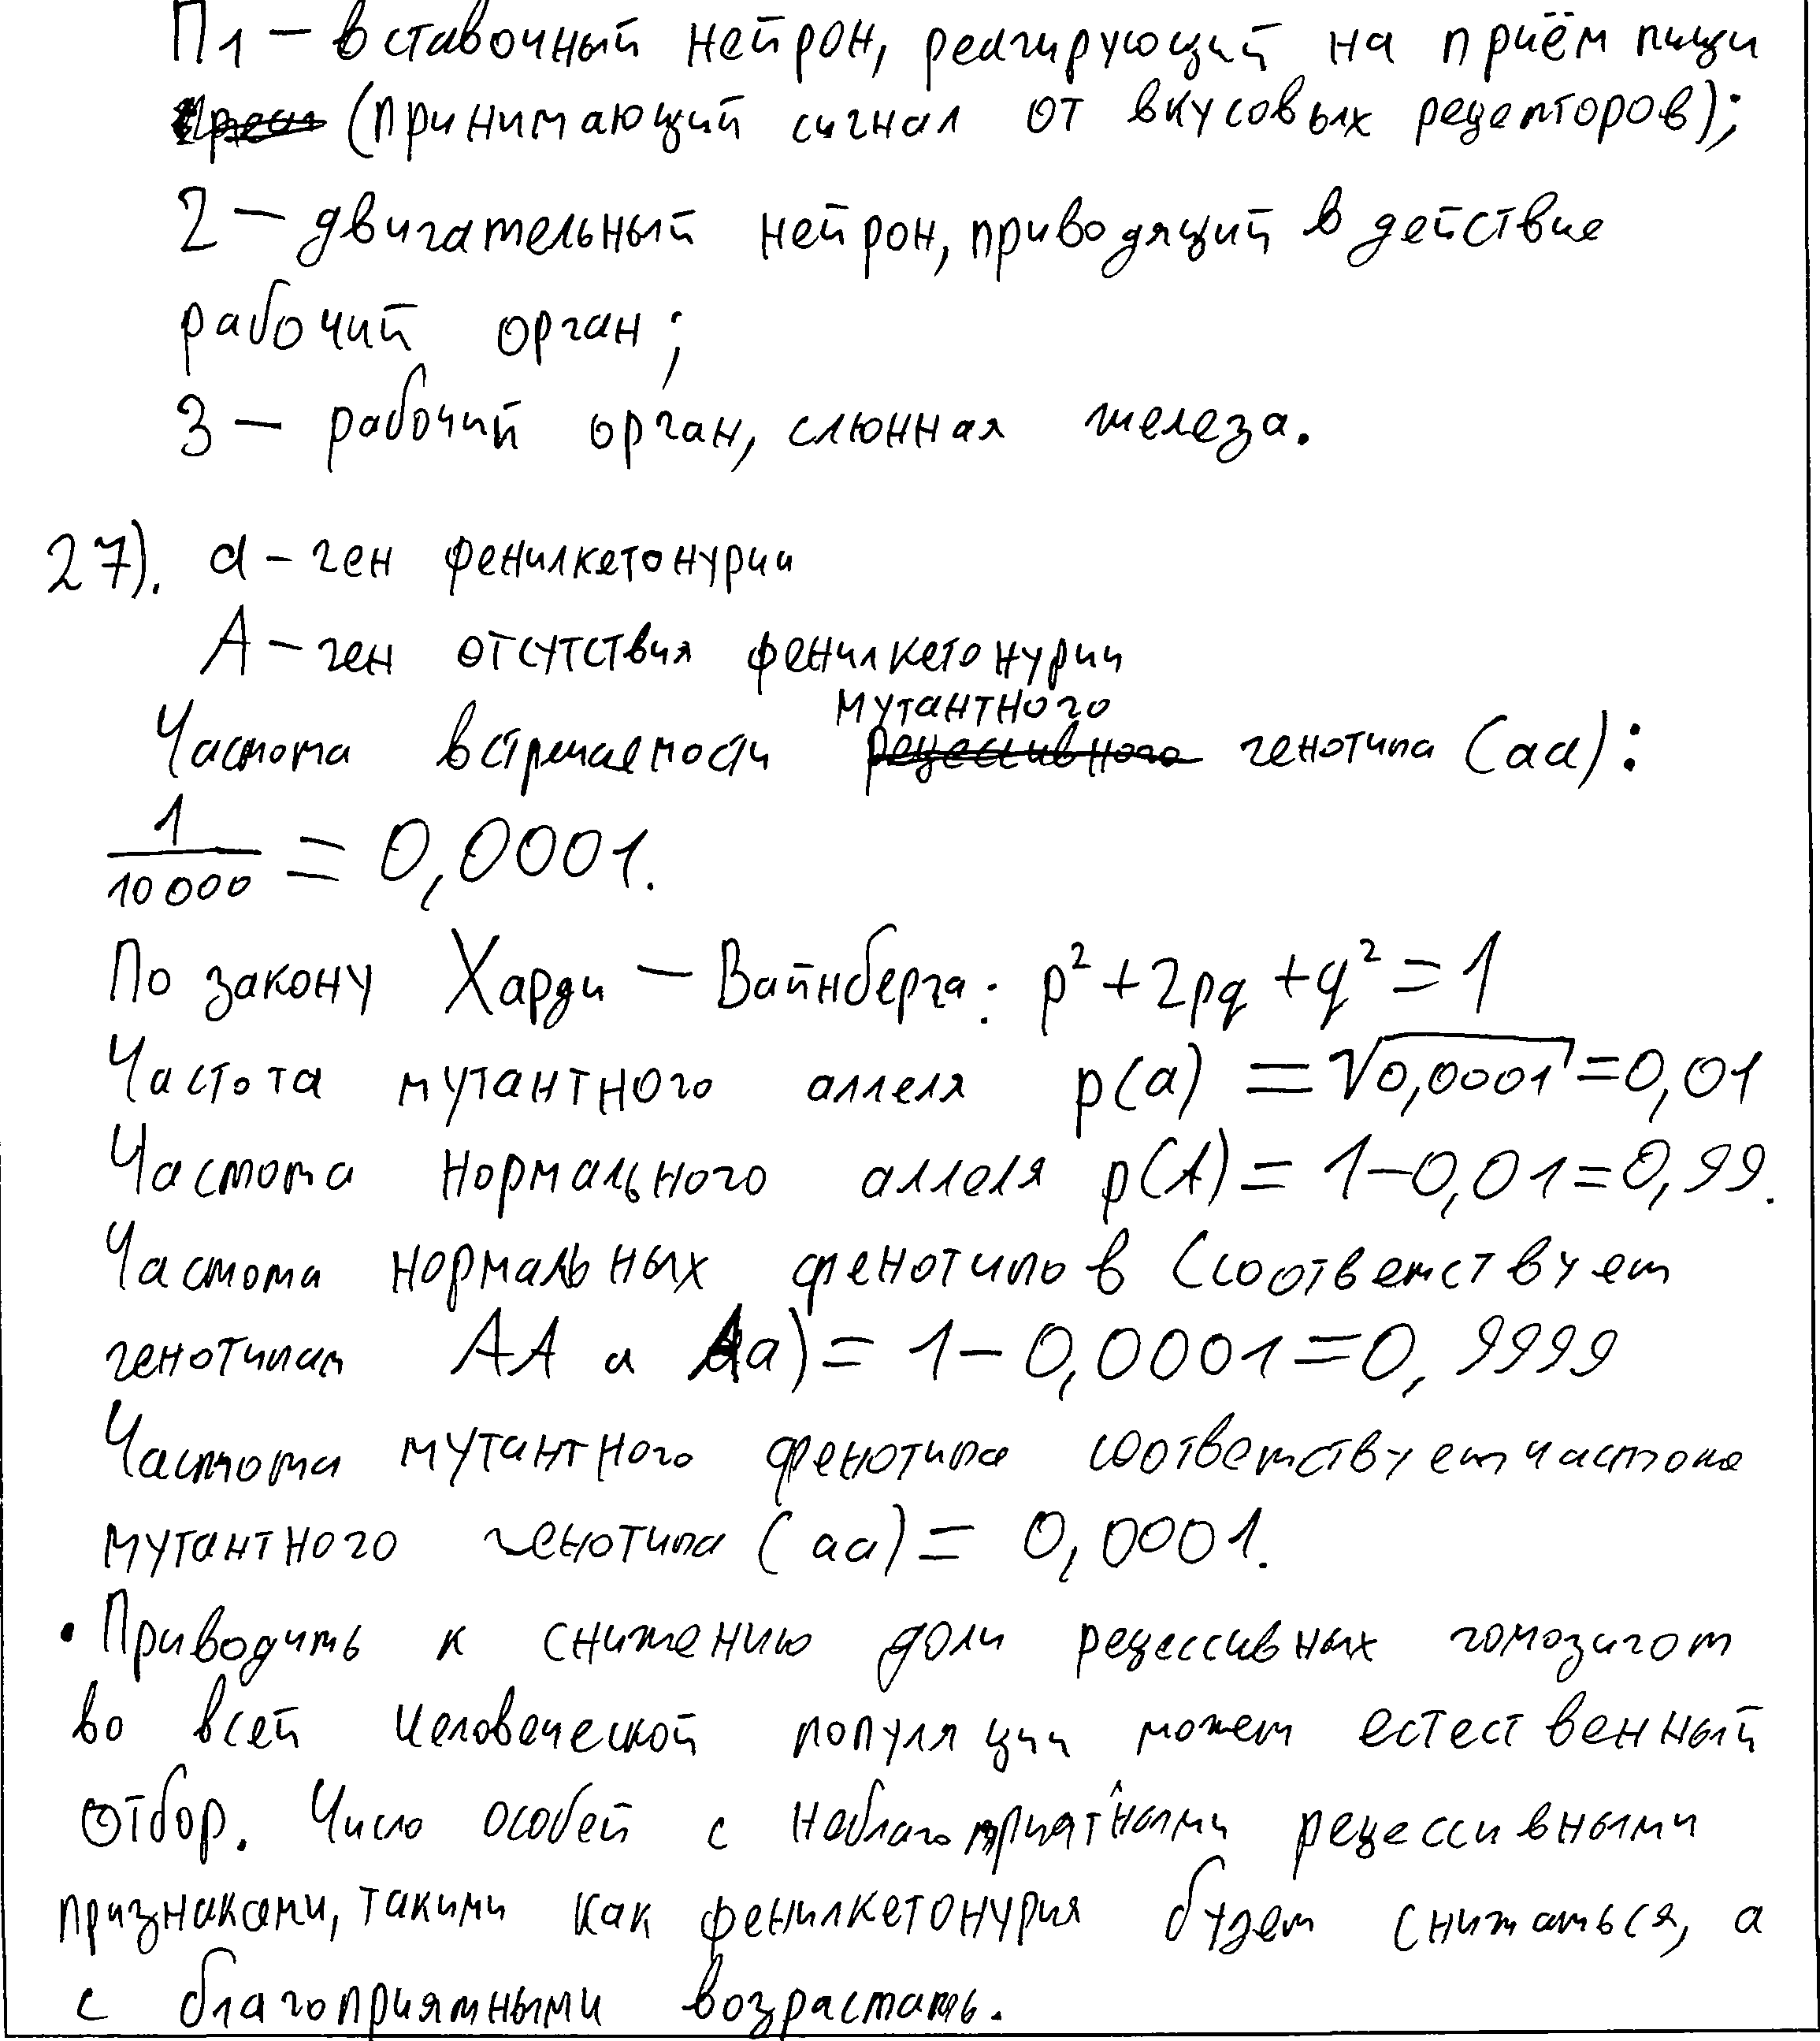 П1 – вставочный нейрон, реагирующий на приём пищи
(принимающий сигнал от вкусовых рецепторов);
2 – двигательный нейрон, приводящий в действие
рабочий орган;
3 – рабочий орган, слюнная железа.
27). a – ген фенилкетонурии
А – ген отсутствия фенилкетонурии
мутантного
Частота встречаемости рецессивного генотипа (aa):
1/10000 = 0,0001.
По закону Харди – Вайнберга: p² + 2pq + q² = 1
Частота мутантного аллеля p(a) = √0,0001 = 0,01
Частота нормального аллеля p(A) = 1 – 0,01 = 0,99.
Частота нормальных фенотипов (соответствует
генотипам АА и Аа) = 1 – 0,0001 = 0,9999
Частота мутантного фенотипа соответствует частоте
мутантного генотипа (aa) = 0,0001.
• Приводить к снижению доли рецессивных гомозигот
во всей человеческой популяции может естественный
отбор. Число особей с неблагоприятными рецессивными
признаками, такими как фенилкетонурия будет снижаться, а
с благоприятными возрастать.